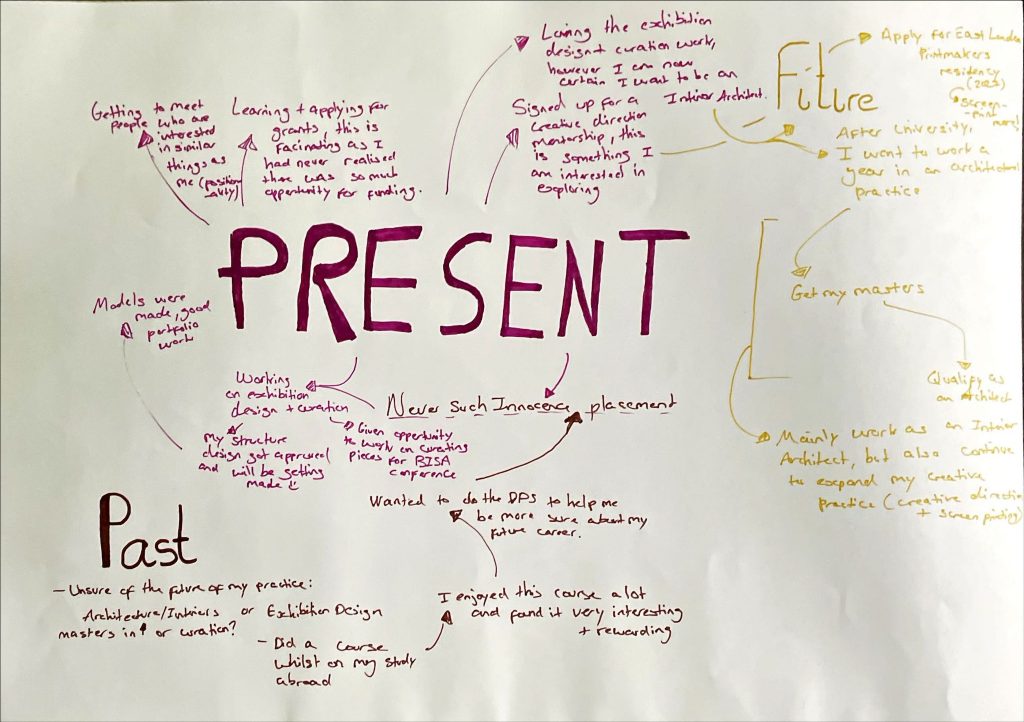 Getting to meet
people who are
interested
in similar
things as
me (position-
ality)
Learning + applying for
grants, this is
facinating as I
had never realised
there was so much
oppertunity for funding.
Loving the exhibition
design + curation work,
however I am now
certain I want to be an
Interior Architect.
Signed up for a
creative direction
mentorship, this
is something I
am interested in
exploring
Future
Apply for East London
Printmakers
residency
screen-
print more!
After University,
I want to work a
year in an architectural
practice
Get my masters
Qualify as
an Architect
Mainly work as an Interior
Architect, but also continue
to expand my creative
practice (creative direction
+ screen printing)
PRESENT
Models were
made, good
portfolio
work
Working
on exhibition
design + curation
My structure
design got approved
and will be getting
made :)
Given oppertunity
to work on curating
pieces for BISA
conference
Never Such Innocence placement
Wanted to do the DPS to help me
be more sure about my
future career.
Past
- Unsure of the future of my practice:
Architecture/Interiors or Exhibition Design
masters in↑ or curation?
- Did a course
whilst on my study
abroad
I enjoyed this course a lot
and found it very interesting
+ rewarding